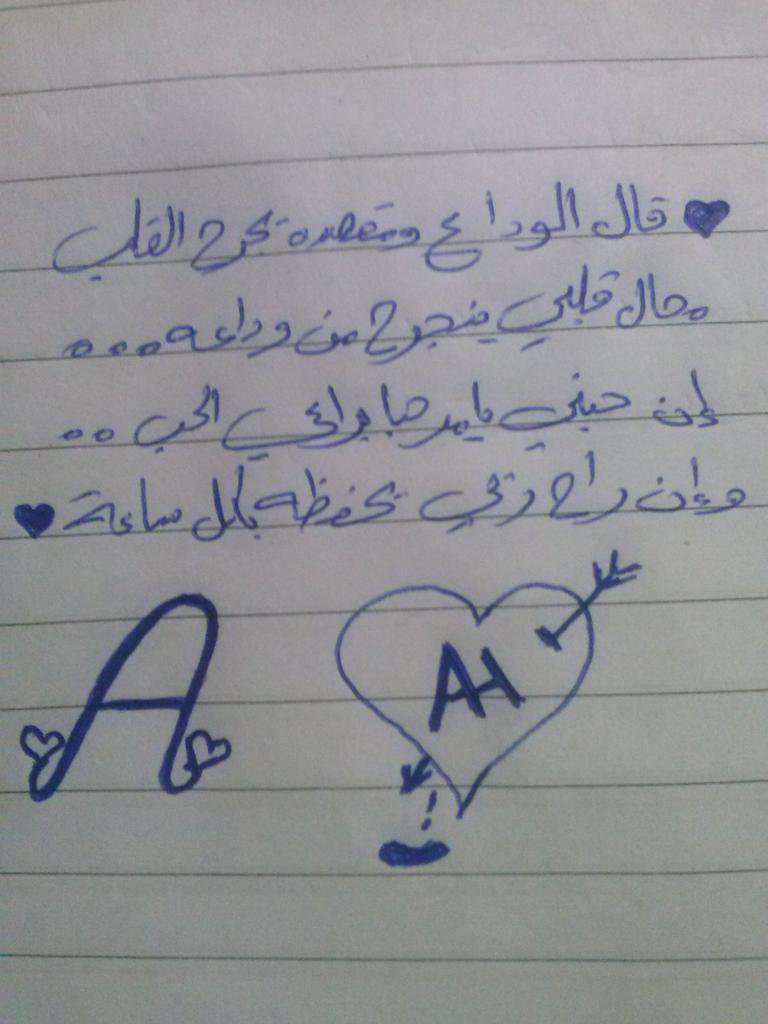 قال الوداع ومقصده يجرح القلب
محال قلبي ينجرح من وداعه...
إن حبني يا مرحبا براعي الحب ..
وإن راح ربي يحفظه بكل ساعة
A
AH